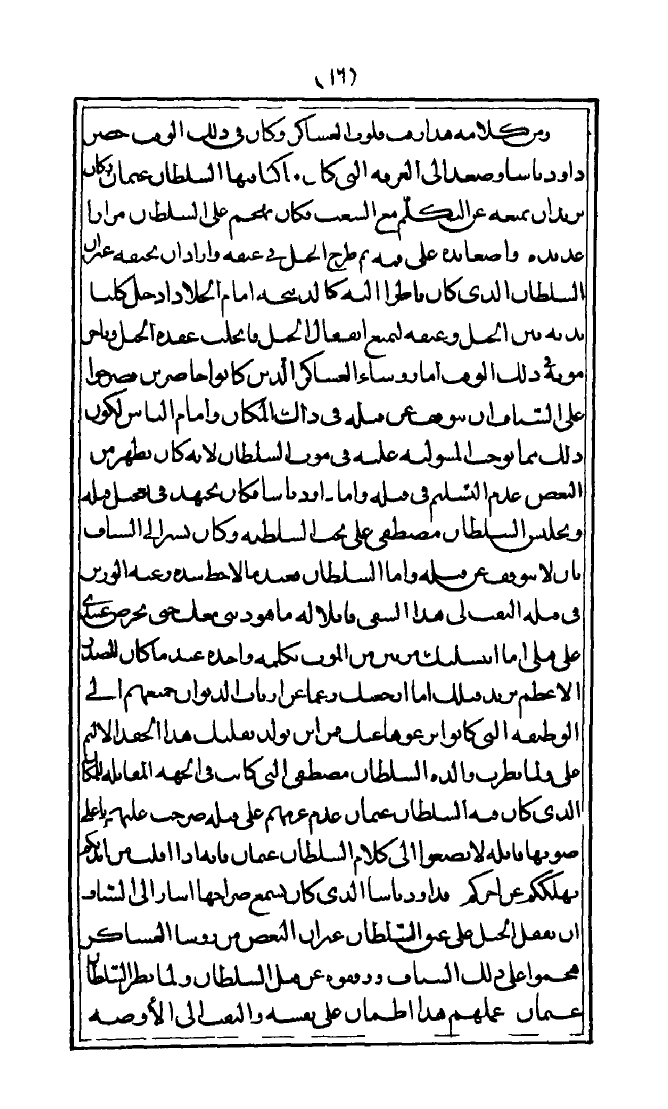 (١٦)
ومن كلامه هذا رقت قلوب العساكر وكان في ذلك الوقت حضر
داود باشا وصعد الى الغرفة التي كان السلطان عثمان وكان
يريد ان يمنعه عن التكلم مع الشعب فكان يهجم على السلطان مرارا
عديدة على فمه ثم طرح الحبل في عنقه واراد ان يخنقه غير ان
السلطان الذي كان ناظرا اليه امام الجلاد ادخل كلتا
يديه بين الحبل وعنقه ليمنع الحبل عقدة الحبل
موته في ذلك الوقت اما روساء العساكر الذين كانوا حاضرين فصرخوا
على السياف ان يتوقف عن قتله في ذاك المكان وامام الناس لكون
ذلك مما يوجب المسولية عليه في موت السلطان لانه كان يظهر من
البعض عدم التسليم في قتله واما داود باشا فكان يجتهد في قتله
ويجلس السلطان مصطفى على تخت السلطنة وكان يشير الى السياف
بان لا يتوقف عن قتله واما السلطان فبعد ما لاحظ شدة رغبة الوزير
في قتله التفت الى هذا الشقي قايلا له ما هو ذنبي معك حتى تحرض
على قتلي اما انتشلتك مرتين من الموت بكلمة واحدة عند ما كان الصدر
الاعظم يريد قتلك اما رغما عن ارباب الديوان جميعهم الى
الوظيفة التي كانوا فمن اين تولد بقلبك هذا الحقد الاثيم
علي ولما نظرت والدة السلطان مصطفى التي كانت في الجهة المقابلة للمكان
الذي كان فيه السلطان عثمان عدم عزمهم على قتله صرخت عليهم باعلى
صوتها قايلة لا تصغوا الى كلام السلطان عثمان فانه اذا افلت من ايديكم
يهلككم عن اخركم فداود باشا الذي كان يسمع صراخها اشار الى السياف
ان الحبل على عنق السلطان غير ان البعض من روسا العساكر
هجموا على ذلك السياف عن قتل السلطان ولما نظر السلطان
عثمان عملهم هذا اطمان على نفسه والتفت الى الأوضه